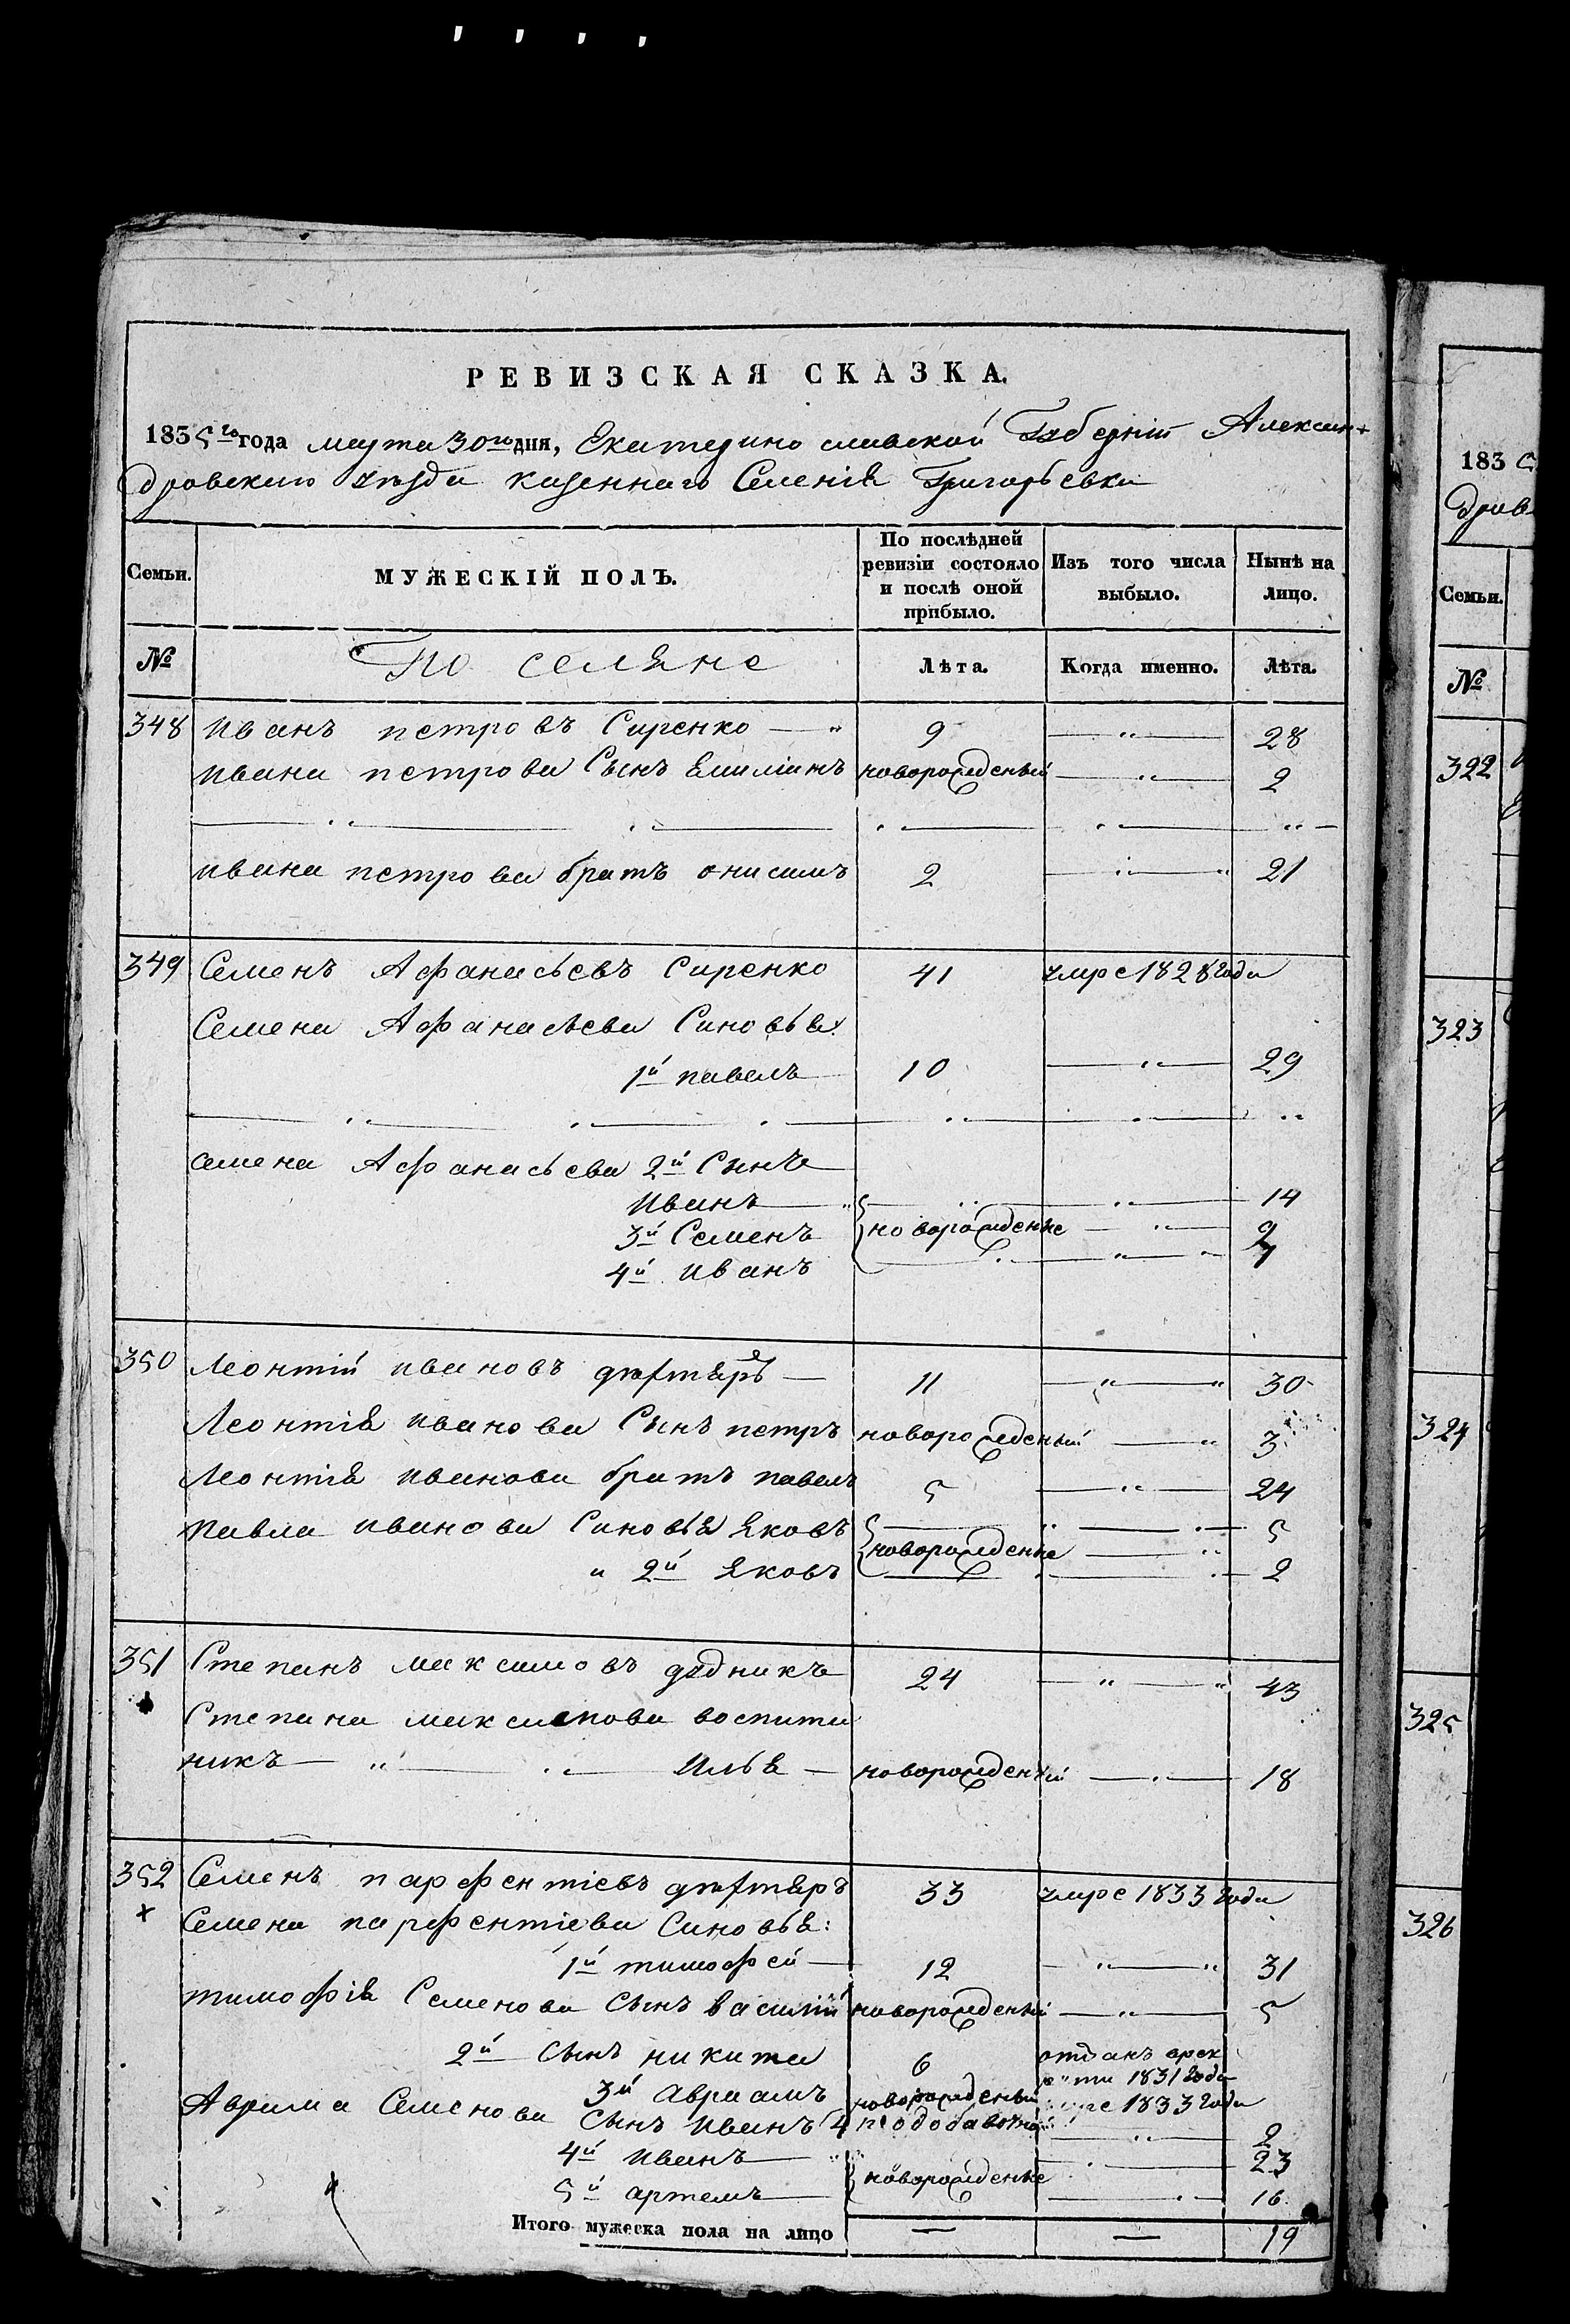 РЕВИЗСКАЯ СКАЗКА.
1835го года марта 30го дня, Екатерино славской Губерніи Алексан
дровскаго уѣзда казеннаго Селенія Григорьевки
Семьи. МУЖЕСКІЙ ПОЛЪ. По послѣдней ревизіи состояло и послѣ оной прибыло. Изъ того числа выбыло. Нынѣ на лицо.
№ По селяне Лѣта. Когда именно. Лѣта.
348 Иванъ петровъ Сиренко 9 28
ивана петрова Сынъ Емиліянъ новорожденый 2
ивана петрова братъ онисимъ 2 21
349 Семенъ Афанасьевъ Сиренко 41 умре 1828 года
Семена Афанасьева Синовья
1й павелъ 10 29
семена Афанасьева 2й Сынъ
Иванъ 14
3й Семенъ новорожденые 9
4й иванъ
350 Леонтій ивановъ 11 30
Леонтія иванова Сынъ петръ новорожденый 3
Леонтія иванова братъ павелъ 5 24
павла иванова Синовья яковъ 5
2й яковъ новорожденые 2
351 Степанъ максимовъ дудникъ 24 43
Степана максимова воспита
никъ Илья новорожденый 18
352 Семенъ парфентіевъ 33 умре 1833 года
Семена парфентіева Синовья:
1й тимофей 12 31
тимофія Семенова Сынъ василій новорожденый 5
2й Сынъ никита 6 отданъ врек
ру ти 1831 года
3й авраамъ новорожденый умре 1833 года
Аврама Семенова Сынъ иванъ 2
4й иванъ 23
5й артемъ новорожденые 16
Итого мужеска пола на лицо — — 19
183
дров
Семьи.
№
322
323
324
325
326